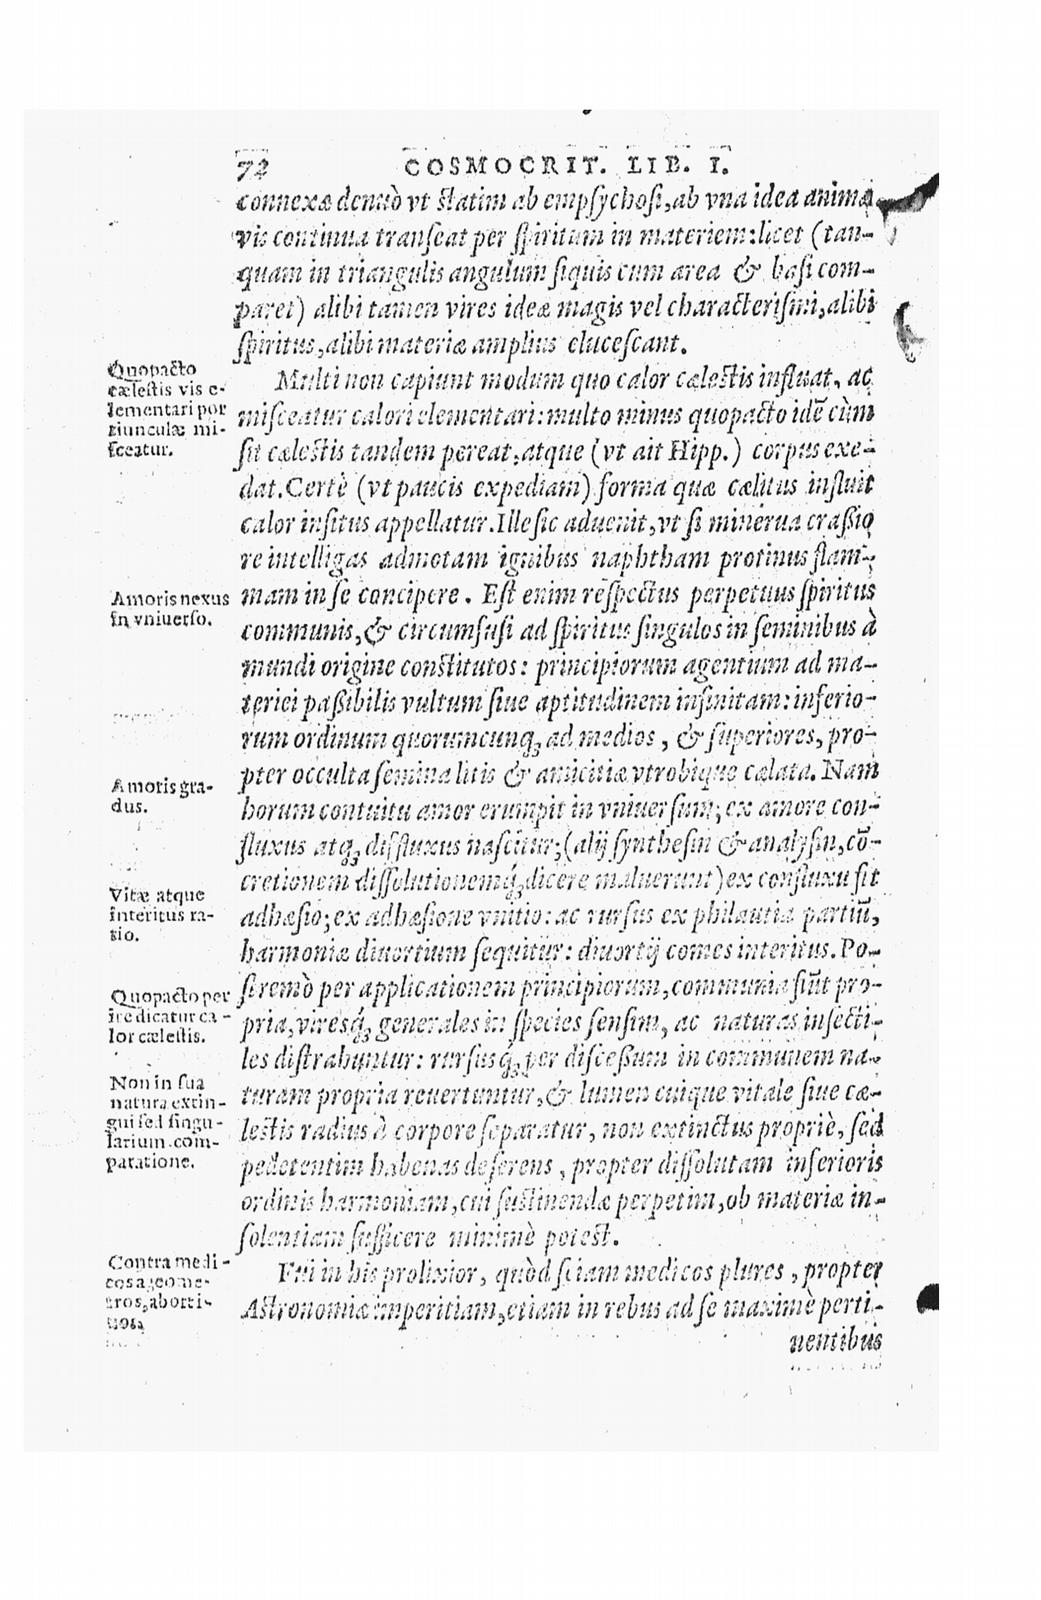 72 COSMOCRIT. LIB. I.
connexæ denuò vt ſtatim ab empſychoſi, ab vna idea anima
vis continua tranſeat per ſpiritum in materiem: licet (tan-
quam in triangulis angulum ſiquis cum area & baſi com-
paret) alibi tamen vires ideæ magis vel characteriſmi, alibi
ſpiritus, alibi materiæ amplius eluceſcant.
Quopacto
cæleſtis vis e-
lementari por
tiunculæ mi-
ſceatur.
Multi non capiunt modum quo calor cæleſtis influat, ac
miſceatur calori elementari: multo minus quopacto idẽ cùm
ſit cæleſtis tandem pereat, atque (vt ait Hipp.) corpus exe-
dat. Certè (vt paucis expediam) forma quæ cælitus influit
calor inſitus appellatur. Ille ſic aduenit, vt ſi minerua craßio
re intelligas admotam ignibus naphtham protinus flam-
Amoris nexus
in vniuerſo.
mam in ſe concipere. Eſt enim reſpectus perpetuus ſpiritus
communis, & circumfuſi ad ſpiritus ſingulos in ſeminibus à
mundi origine conſtitutos: principiorum agentium ad ma-
teriei paßibilis vultum ſiue aptitudinem infinitam: inferio-
rum ordinum quorumcunq; ad medios, & ſuperiores, pro-
pter occulta ſemina litis & amicitiæ vtrobique cælata. Nam
Amoris gra-
dus.
horum contuitu amor erumpit in vniuerſum; ex amore con-
fluxus atq; diffluxus naſcitur; (alij ſyntheſin & analyſin, cõ-
cretionem diſſolutionemq́; dicere maluerunt) ex confluxu fit
Vitæ atque
interitus ra-
tio.
adhæſio; ex adhæſione vnitio: ac rurſus ex philautia partiũ,
harmoniæ diuortium ſequitur: diuortij comes interitus. Po-
Quopacto per
ire dicatur ca-
lor cæleſtis.
ſtremò per applicationem principiorum, communia fiũt pro-
pria, viresq́; generales in ſpecies ſenſim, ac naturas inſecti-
les diſtrahuntur: rurſusq́; per diſceßum in communem na-
Non in ſua
natura extin-
gui ſed ſingu-
larium com-
paratione.
turam propria reuertuntur, & lumen cuique vitale ſiue cæ-
leſtis radius à corpore ſeparatur, non extinctus propriè, ſed
pedetentim habenas deſerens, propter diſſolutam inferioris
ordinis harmoniam, cui ſuſtinendæ perpetim, ob materiæ in-
ſolentiam ſufficere minimè poteſt.
Contra medi-
cos ageome-
tros, aborti-
uos.
Fui in his prolixior, quòd ſciam medicos plures, propter
Aſtronomiæ imperitiam, etiam in rebus ad ſe maximè perti-
nentibus